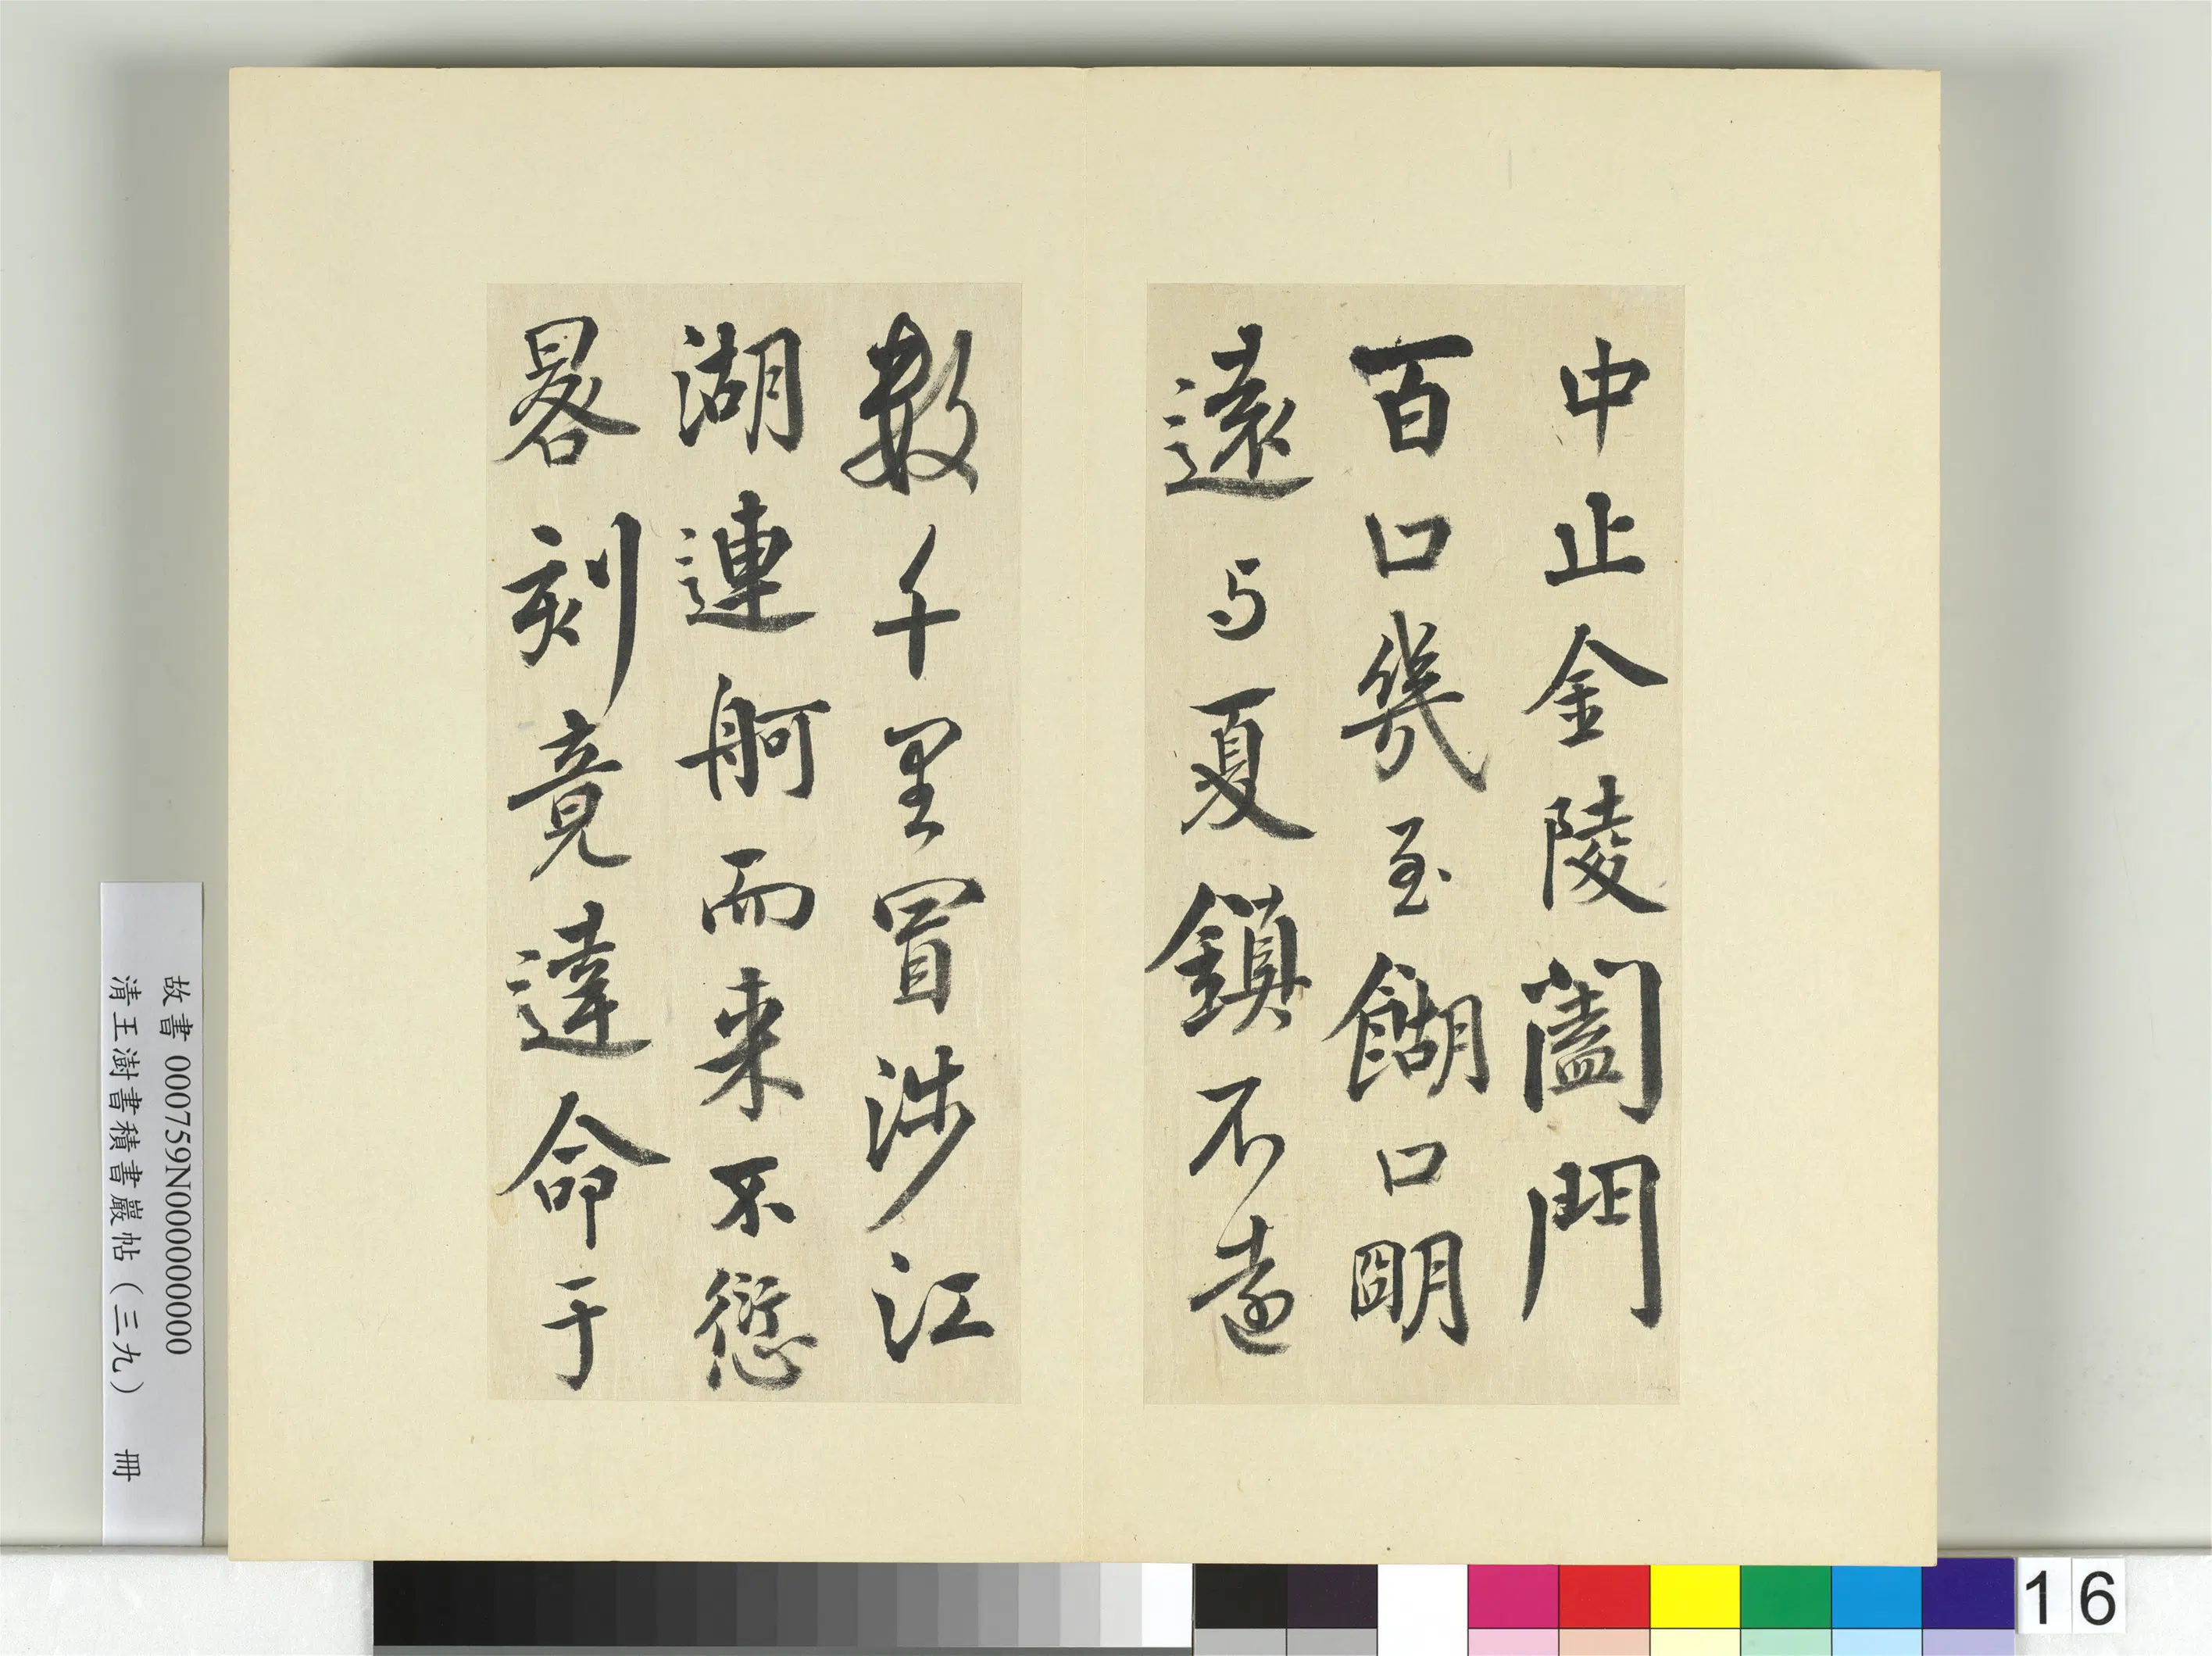 中止金陵闔門
百口幾至餬口朙
遠与夏鎮不遠
數千里冒涉江
湖連舸而来不愆
晷刻竟達命于
故書 000759N000000000
清王澍書積書巖帖（三九） 冊
16